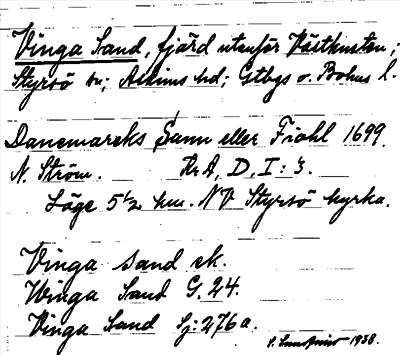 Vinga Sand, fjärd utanför Västkusten;
Styrsö sn; Askims hd; Gtbgs o. Bohus l.
Danemarcks Sann eller Fiahl 1699.
N. Ström. KrA, D, I: 3.
Läge 5½ km. NV Styrsö kyrka.
Vinga sand ek.
Winga Sand G. 24.
Vinga Sand Sj: 276a.
1938.